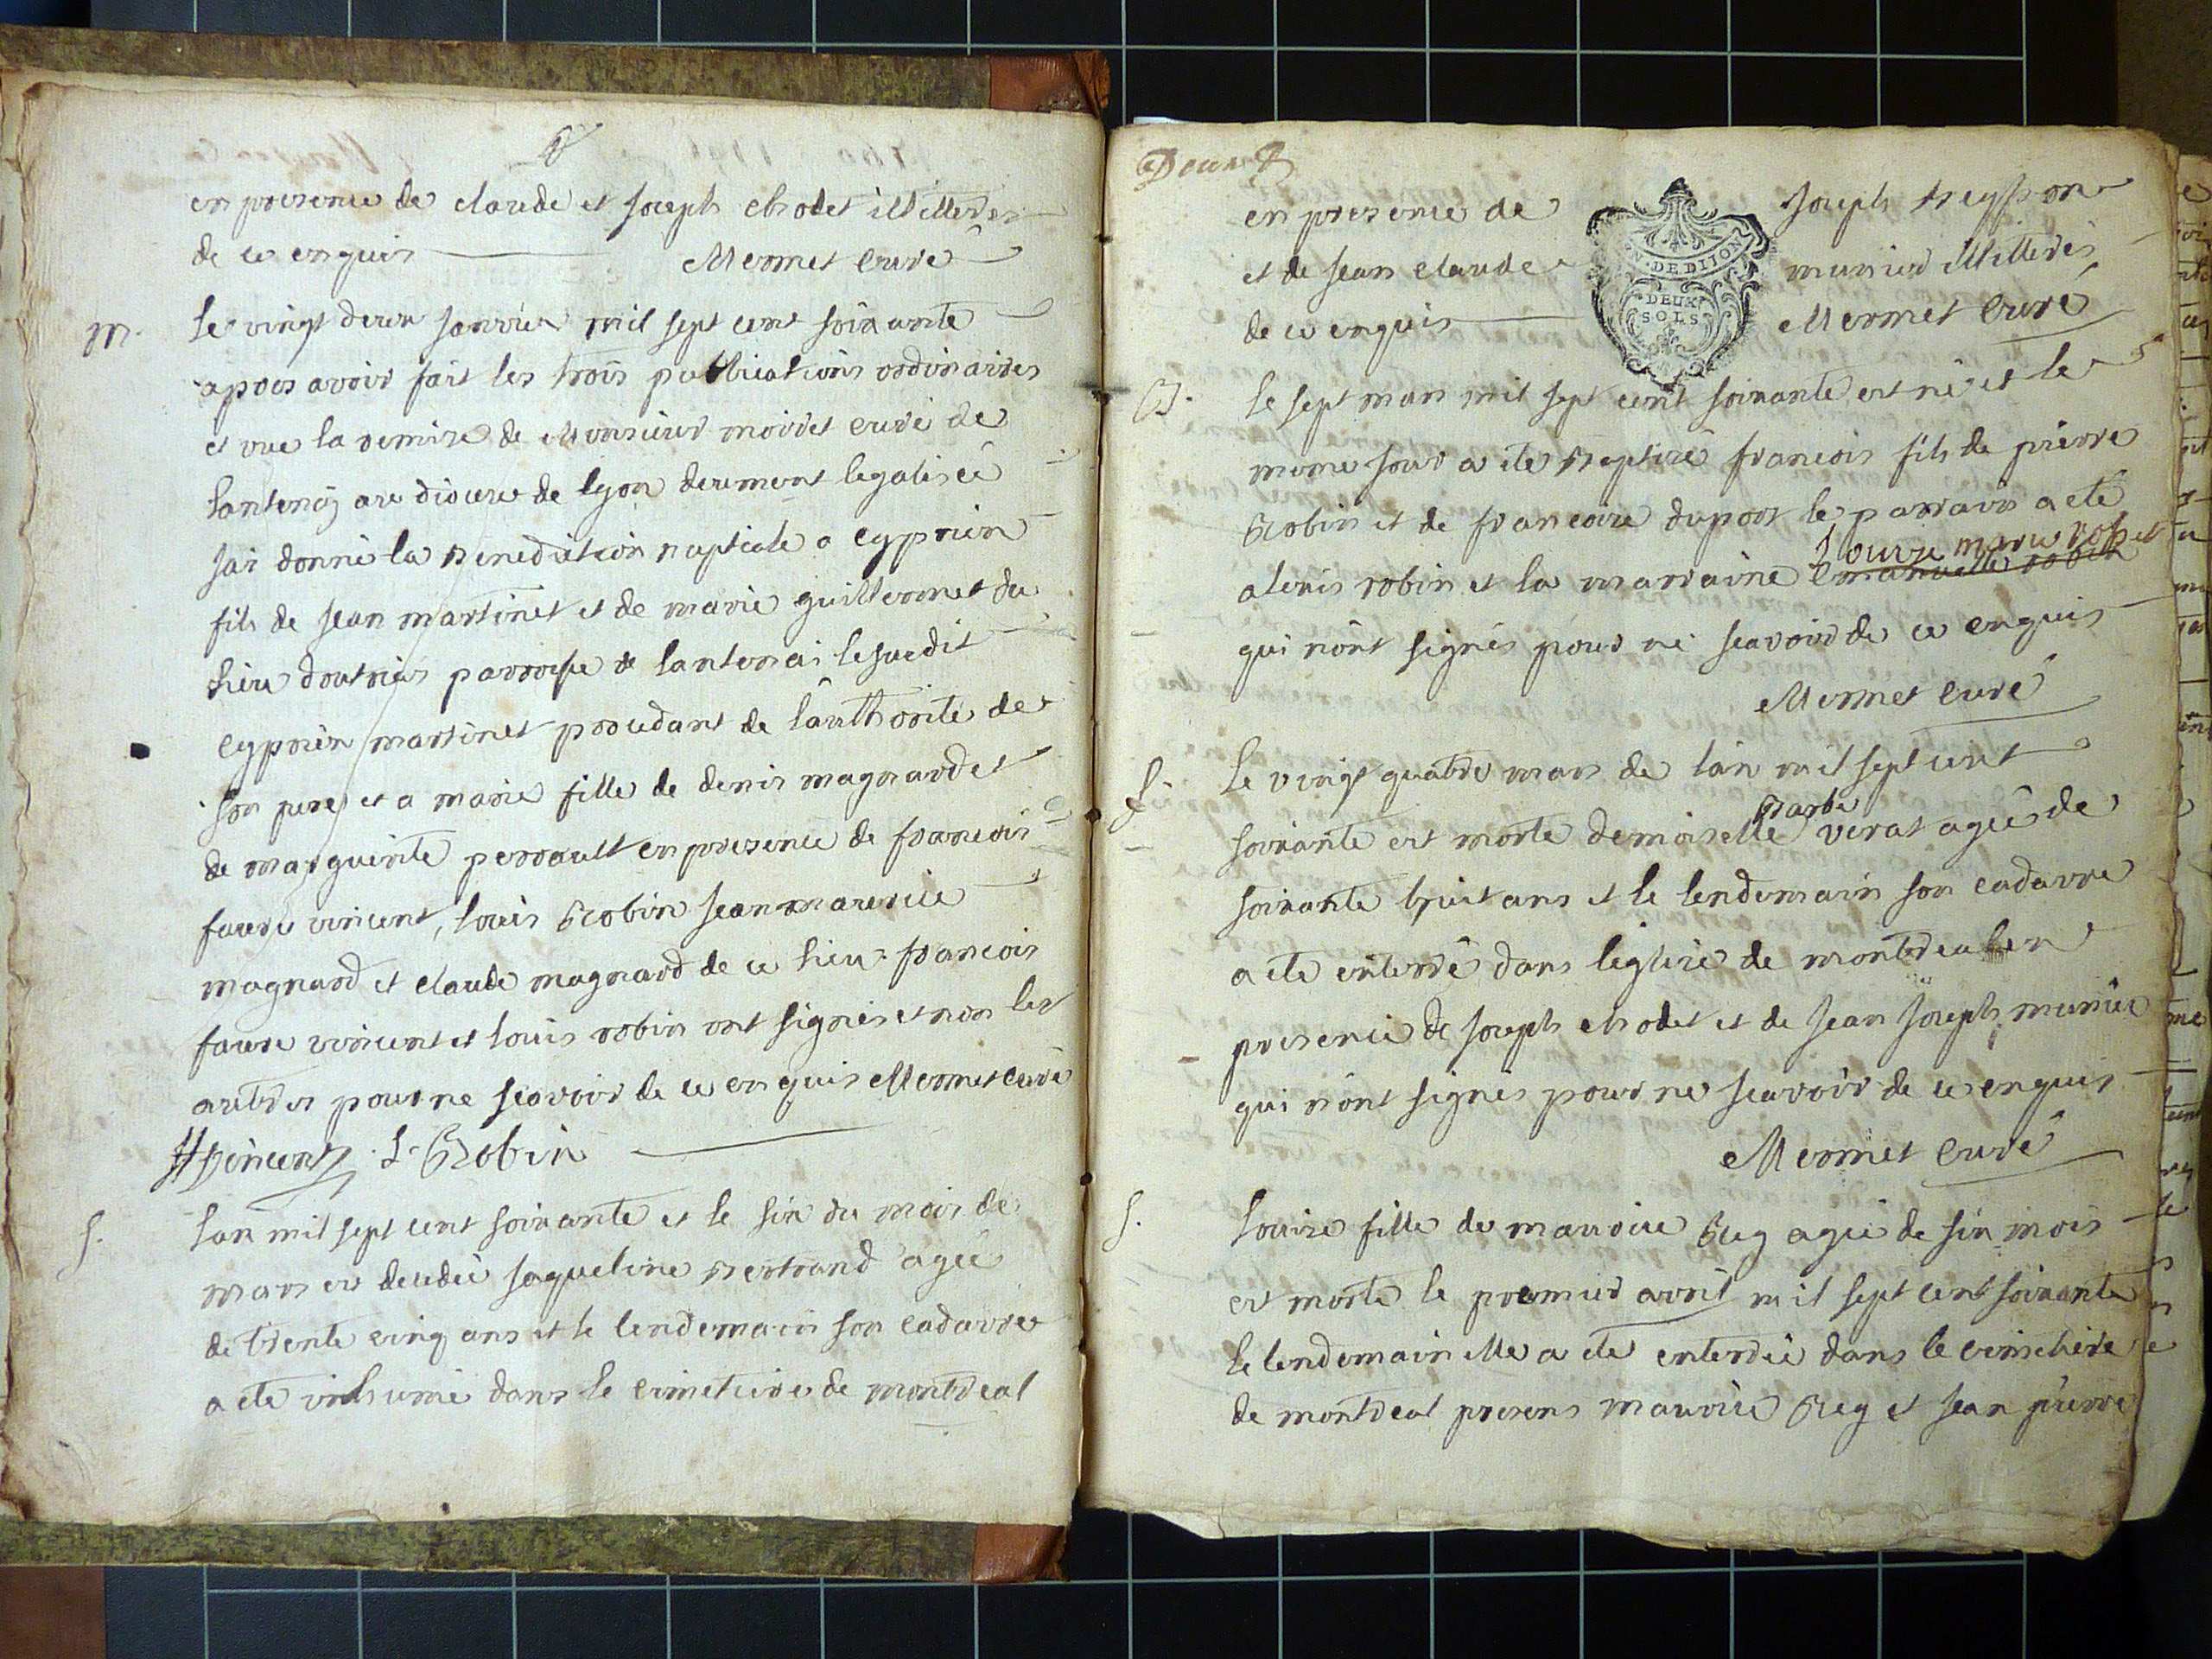 en presence de claude et joseph chodet illitteres
de ce enquis Mermet curé
m. le vingt deux janvier mil sept cent soixante
apres avoir fait les trois publications ordinaires
et vue la remise de Monsieur moiret curé de
lantenay au diocese de lyon deument legalisée
jai donné la benediction nuptiale a cyprien
fils de jean martinet et de marie guillermet du
lieu doutriaz parroisse de lantenai lesusdit
cyprien martinet procedant de l'authorité de
son pere et a marie fille de denis magnard et
de marguerite perrault en presence de francois
faure vincent, louis Robin jean maurice
magnard et claude magnard de ce lieu francois
faure vincent et louis robin ont signés et non les
autres pour ne scavoir de ce enquis Mermet curé
vincent L Robin
s. lan mil sept cent soixante et le six du mois de
mars est decedée jaqueline bertrand agée
de trente cinq ans et le lendemain son cadavre
a ete inhumé dans le cimetiere de montreal
Deux
en presence de joseph
et de jean claude munier illitterés
de ce enquis Mermet curé
G. DE DIJON
DEUX
SOLS
B. le sept mars mil sept cent soixante est né et le
meme jour a ete baptisé francois fils de pierre
Robin et de francoise duport le parrain a eté
louise marie
alexis robin et la marraine emanuelle robin
qui n'ont signés pour ne scavoir de ce enquis
Mermet curé
s. le vingt quatre mars de l'an mil sept cent
barbe
soixante est morte demoiselle verat agée de
soixante huit ans et le lendemain son cadavre
a ete enterré dans leglise de montreal en
presence de joseph chodet et de jean joseph munier
qui n'ont signés pour ne scavoir de ce enquis
Mermet curé
s. louise fille de maurice Rey agée de six mois
est morte le premier avril mil sept cent soixante
le lendemain elle a ete enterrée dans le cimetiere
de montreal presens maurice Rey et jean pierre